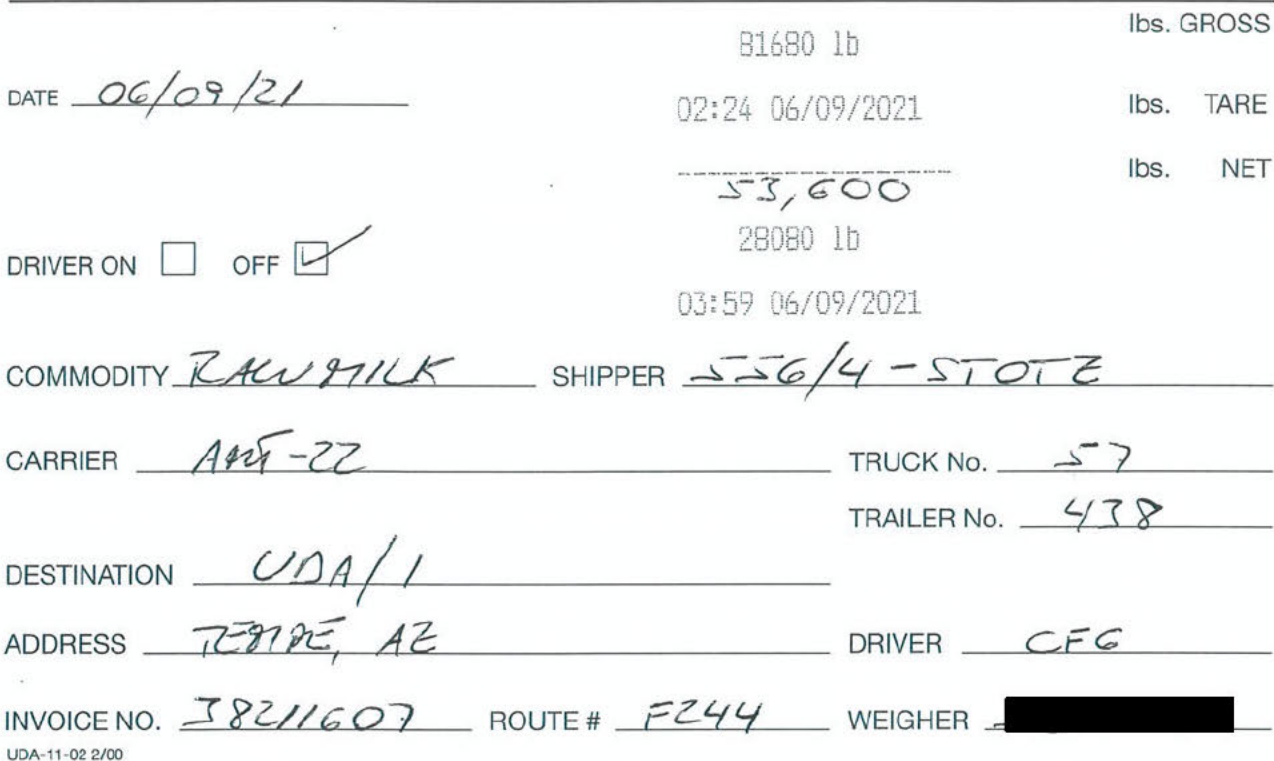 81680 lb lbs. GROSS
DATE 06/09/21 02:24 06/09/2021 lbs. TARE
53,600 lbs. NET
DRIVER ON OFF 28080 lb
03:59 06/09/2021
COMMODITY RAW MILK SHIPPER 556/4-STOTZ
CARRIER TRUCK No. 57
TRAILER No. 438
DESTINATION UDA/1
ADDRESS TEMPE, AZ DRIVER CFG
INVOICE NO. 38211607 ROUTE # FZ44 WEIGHER
UDA-11-02 2/00